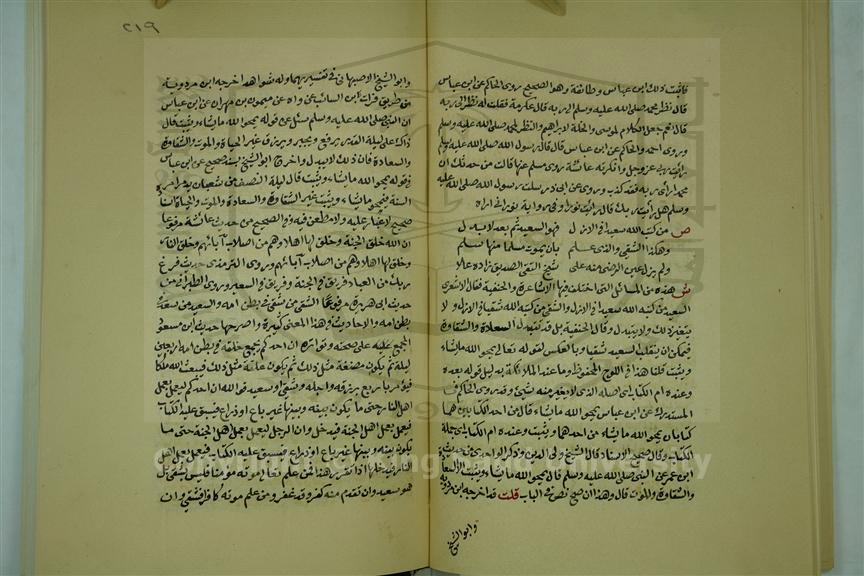 فاثبت ذلك ابن عباس وطائفة وهو الصحيح روى الحاكم عن ابن عباس
قال نظر محمد صلى الله عليه وسلم الى ربه قال عكرمة فقلت له نظر الى ربه
قال نعم جعل الكلام لموسى والخلة لابراهيم والنظر لمحمد صلى الله عليه وسلم
وروى احمد والحاكم عن ابن عباس قال قال رسول الله صلى الله عليه وسلم
رايت ربى عز وجل وانكرته عائشة روى مسلم عنها قالت من حدثك ان
محمدا راى ربه فقد كذب وروى عن ابى ذر سالت رسول الله صلى الله عليه
وسلم هل رايت ربك قال رايت نورا وفى رواية نور انى اراه
ص من كتب الله سعيدا فى الازل فهو السعيد ثم بعد لا يبدل
وهكذا الشقى والذى علم بان يموت مسلما منها سلم
ولم يزل عين الرضى منه على شيخ التقى الصديق زاده علا
ش هذه من المسائل التى اختلف فيها الاشاعرة والحنفية فقال الاشعرى
السعيد من كتبه الله سعيدا فى الازل والشقى من كتبه الله شقيا فى الازل ولا
يتغير ذلك ولا يتبدل وقال الحنفية بل قد تتبدل السعادة والشقاوة
فيمكن ان ينقلب السعيد شقيا وبالعكس لقوله تعالى يمحو الله ما يشاء
ويثبت قلنا هذا فى اللوح المحفوظ وما عند الملائكة بدليل قوله بعده
وعنده ام الكتاب اى اصله الذى لا يغير منه شىء وقد روى الحاكم فى
المستدرك عن ابن عباس يمحو الله ما يشاء قال من احد الكتابين هما
كتابان يمحو الله ما يشاء من احدهما ويثبت وعنده ام الكتاب اى جملة
الكتاب وقال صحيح الاسناد قال الشيخ ولى الدين وذكر الواحدى من حديث
ابن عمر عن النبى صلى الله عليه وسلم قال يمحو الله ما يشاء ويثبت الا السعادة
والشقاوة والموت قال وهذا ان صح نص فى الباب قلت قد اخرجه ابن مردويه
وابو الشيخ
٢١٩
وابو الشيخ الاصبهانى فى تفسيريهما وله شواهد اخرجه ابن مردويه
من طريق فرات ابن السائب عن ميمون بن مهران عن ابن عباس
ان النبى صلى الله عليه وسلم سئل عن قوله يمحو الله ما يشاء ويثبت قال
ذلك على ليلة القدر يرفع ويجبر ويرزق غير الحياة والموت والشقاوة
والسعادة فان ذلك لا يبدل واخرج ابو الشيخ بسند صحيح عن ابن عباس
فى قوله يمحو الله ما يشاء ويثبت قال ليلة النصف من شعبان يدبر امر
السنة فيمحو ما يشاء ويثبت غير الشقاوة والسعادة والموت والحياة
صحيح لا غبار عليه ولا مطعن فيه وفى الصحيح من حديث عائشة مرفوعا
ان الله خلق الجنة وخلق لها اهلا وهم من اصلاب آبائهم وخلق النار
وخلق لها اهلا وهم من اصلاب آبائهم وروى الترمذى حديث فرغ
ربك من العباد فريق فى الجنة وفريق فى السعير وروى الطبرانى من
حديث ابى هريرة مرفوعا الشقى من شقى فى بطن امه والسعيد من سعد فى
بطن امه والاحاديث فى هذا المعنى كثيرة واصرحها حديث ابن مسعود
المجمع عليه على صحته وتواتره ان احدكم يجمع خلقه فى بطن امه اربعين
ليلة ثم يكون مضغة مثل ذلك ثم يكون علقة مثل ذلك فيبعث الله ملكا
فيؤمر باربع برزقه واجله وشقى او سعيد فوالله ان احدكم ليعمل بعمل
اهل النار حتى ما يكون بينه وبينها غير باع او ذراع فيسبق عليه الكتاب
فيعمل بعمل اهل الجنة فيدخل وان الرجل ليعمل بعمل اهل الجنة حتى ما
يكون بينه وبينها غير باع او ذراع فيسبق عليه الكتاب فيعمل بعمل اهل
النار فيدخلها اذا تقرر هذا فمن علم تعالى موته مؤمنا فليس بشقى بل
هو سعيد وان تقدم منه كفر وقد غفر ومن علم موته كافرا فشقى وان